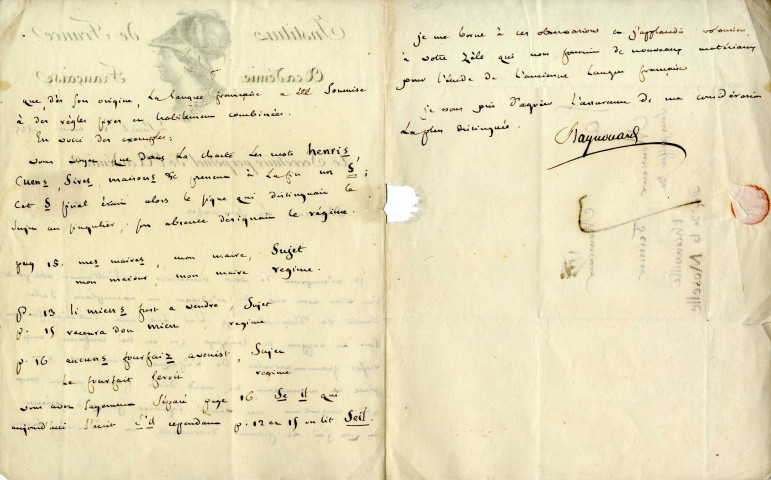 que, dès son origine, la langue française a été soumise
à des règles fixes et habilement combinées.
En voici des exemples:
vous voyez que dans la charte les mots henris,
Cuens, Sires, maisons &c prennent à la fin un S;
Cet S final était alors le signe qui distinguait le
Sujet au singulier; son absence désignait le régime.
pag 15. mes maires, mon maire, Sujet
mon maiour, mon maire regime.
p. 13 li miens fust a vendre, Sujet
p. 15 recevra dou mien regime
p. 16 aucuns fourfaiz avenist, Sujet
Le fourfait feroit regime
vous avez sagement séparé page 16. Se il qui
aujourd'hui s'écrit s'il cependant p. 12 et 15 on lit Seil.
je me borne à ces observations et j'applaudis volontiers
à votre zèle qui nous fournit de nouveaux matériaux
pour l'étude de l'ancienne langue française
je vous prie d'agréer l'assurance de ma considération
la plus distinguée.
Raynouard
Institut de France
Académie Française
Monsieur
Monsieur Teissier
Thionville
Dépt de la Moselle